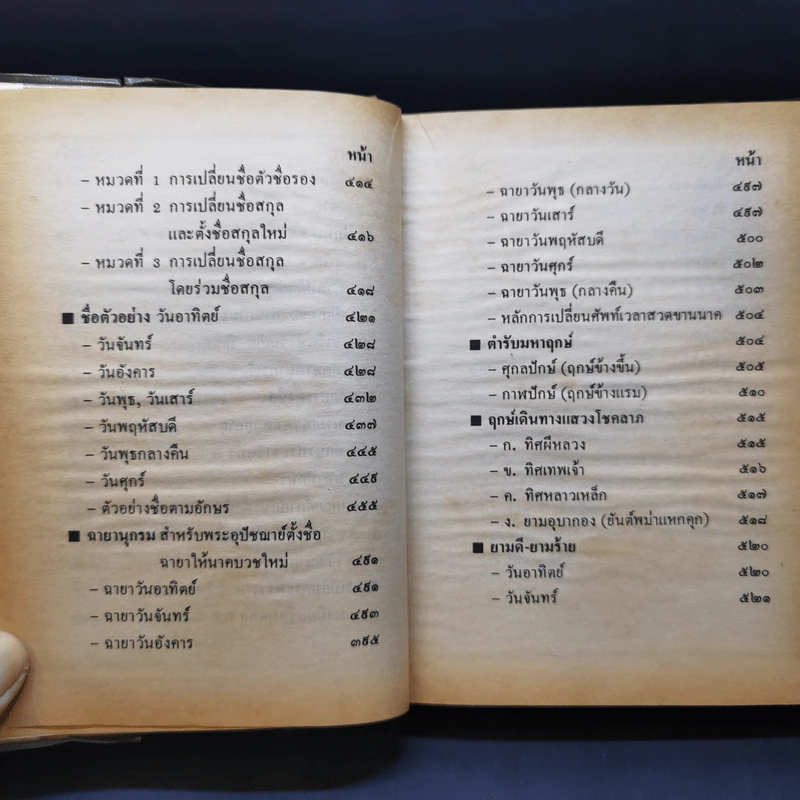 หน้า
– หมวดที่ 1 การเปลี่ยนชื่อตัวชื่อรอง ๔๑๔
– หมวดที่ 2 การเปลี่ยนชื่อสกุล
และตั้งชื่อสกุลใหม่ ๔๑๖
– หมวดที่ 3 การเปลี่ยนชื่อสกุล
โดยร่วมชื่อสกุล ๔๑๘
■ ชื่อตัวอย่าง วันอาทิตย์ ๔๒๑
– วันจันทร์ ๔๒๘
– วันอังคาร ๔๒๘
– วันพุธ, วันเสาร์ ๔๓๒
– วันพฤหัสบดี ๔๓๗
– วันพุธกลางคืน ๔๔๕
– วันศุกร์ ๔๔๙
– ตัวอย่างชื่อตามอักษร ๔๕๕
■ ฉายานุกรม สำหรับพระอุปัชฌาย์ตั้งชื่อ
ฉายาให้นาคบวชใหม่ ๔๙๑
– ฉายาวันอาทิตย์ ๔๙๑
– ฉายาวันจันทร์ ๔๙๓
– ฉายาวันอังคาร ๓๙๕
หน้า
– ฉายาวันพุธ (กลางวัน) ๔๙๗
– ฉายาวันเสาร์ ๔๙๗
– ฉายาวันพฤหัสบดี ๕๐๐
– ฉายาวันศุกร์ ๕๐๒
– ฉายาวันพุธ (กลางคืน) ๕๐๓
– หลักการเปลี่ยนศัพท์เวลาสวดขานนาค ๕๐๔
■ ตำรับมหาฤกษ์ ๕๐๔
– ศุกลปักษ์ (ฤกษ์ข้างขึ้น) ๕๐๕
– กาฬปักษ์ (ฤกษ์ข้างแรม) ๕๑๐
■ ฤกษ์เดินทางแสวงโชคลาภ ๕๑๕
– ก. ทิศผีหลวง ๕๑๕
– ข. ทิศเทพเจ้า ๕๑๖
– ค. ทิศหลาวเหล็ก ๕๑๗
– ง. ยามอุบากอง (ยันต์พม่าแหกคุก) ๕๑๘
■ ยามดี-ยามร้าย ๕๒๐
– วันอาทิตย์ ๕๒๐
– วันจันทร์ ๕๒๑